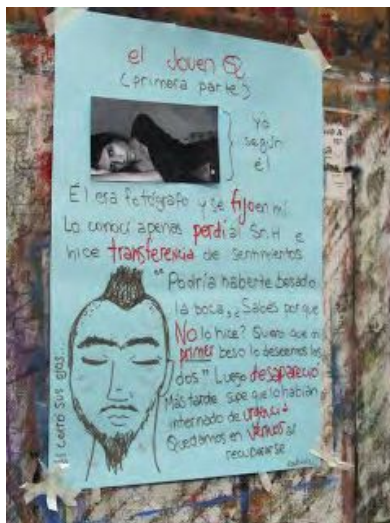 el Joven
(primera parte)
Yo
según
él
Él era fotógrafo y se fijo en mi
Lo conocí apenas perdí al Sr. H e
hice transferencia de sentimientos
"Podría haberte besado
la boca, ¿Sabes por que
No lo hice? Quiero que mi
primer beso lo deseemos los
dos" Luego desapareció
Más tarde supe que lo habían
internado de urgencia
Quedamos en vernos al
recuperarse
Él cerró sus ojos...